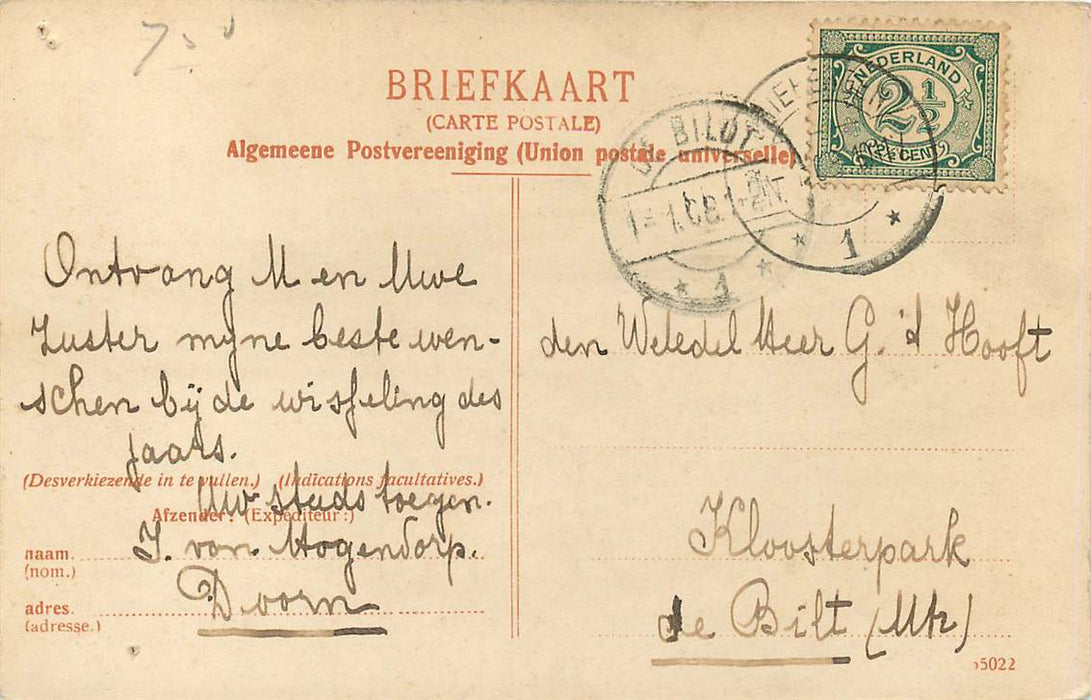 7.
BRIEFKAART
(CARTE POSTALE)
Algemeene Postvereeniging (Union postale universelle)
NEDERLAND
2½
2½ CENT
DE BILDT
1
1
Ontvang U en Uwe
Zuster myne beste wen-
schen bij de wisseling des
jaars.
(Desverkiezende in te vullen.) (Indications facultatives.)
Uw steeds toegen.
Afzender: (Expéditeur:)
naam. J. van Hogendorp.
(nom.)
adres. Doorn
(adresse.)
den Weledel Heer G. 't Hooft
Kloosterpark
de Bilt (Utr)
5022